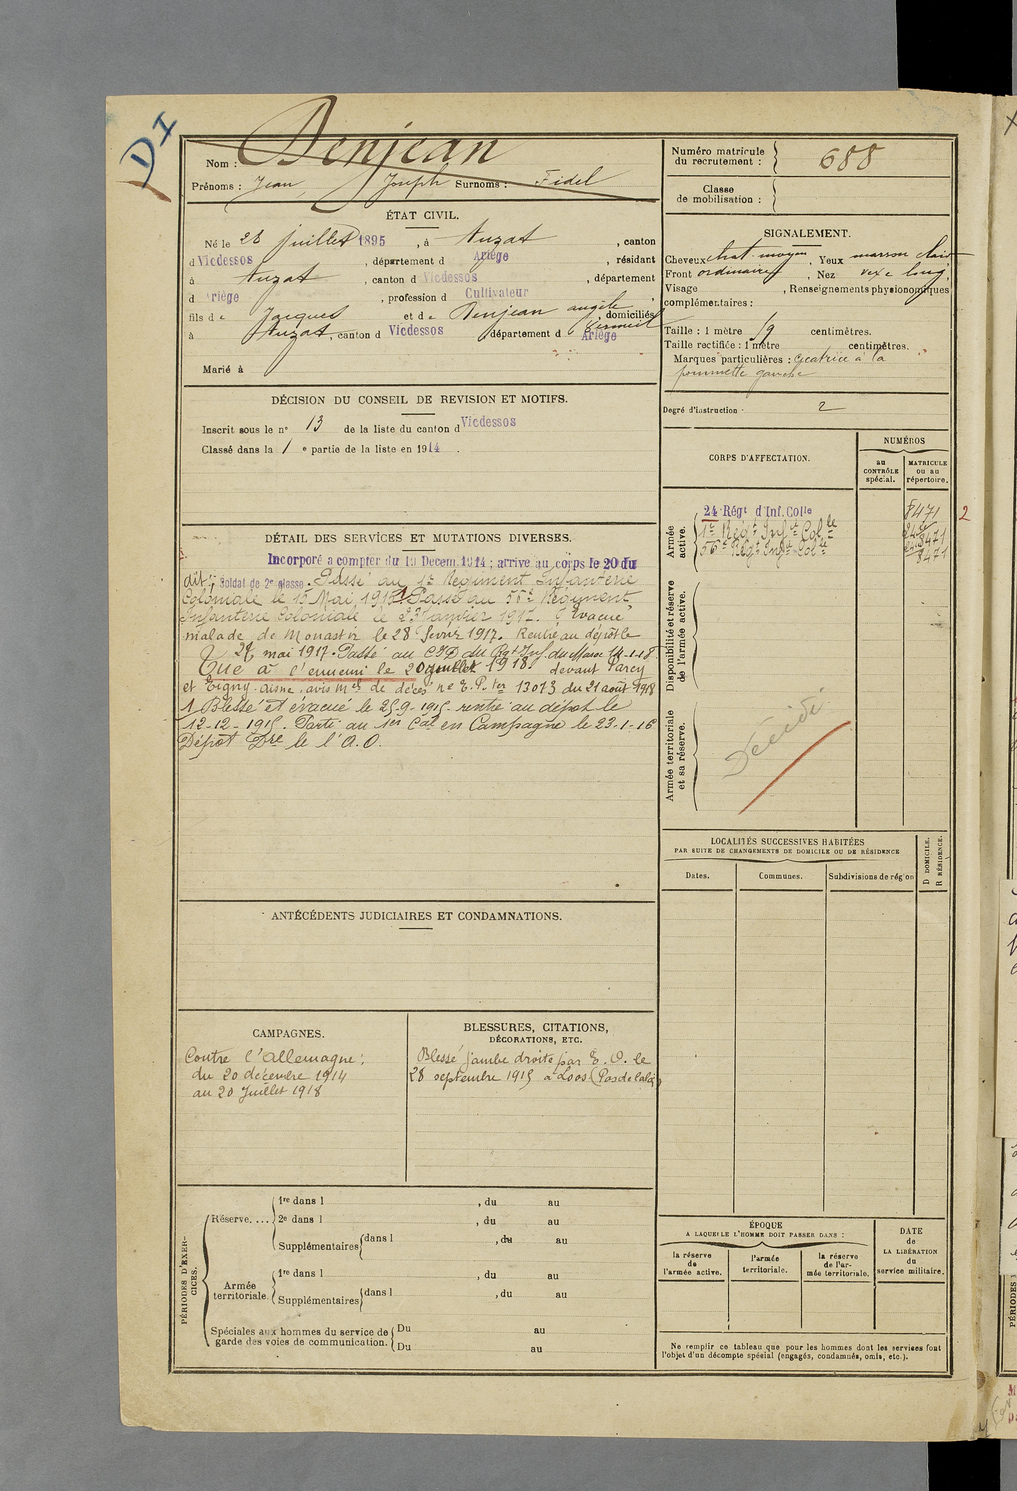 DI
Nom : Denjean
Prénoms : Jean, Joseph Surnoms : Fidel
ÉTAT CIVIL.
Né le 28 juillet 1895, à Auzat, canton
d Vicdessos, département d Ariège, résidant
à Auzat, canton d Vicdessos, département
d Ariège, profession d Cultivateur
fils de Jacques et de Denjean angèle, domiciliés
à Auzat, canton d Vicdessos, département d Ariège
Marié à
DÉCISION DU CONSEIL DE REVISION ET MOTIFS.
Inscrit sous le n° 13 de la liste du canton d Vicdessos
Classé dans la 1e partie de la liste en 1914.
DÉTAIL DES SERVICES ET MUTATIONS DIVERSES.
Incorporé a compter du 19 Decem. 1914 ; arrive au corps le 20 du
dit ; Soldat de 2e classe. Passé au 1er Régiment Infanterie
Coloniale le 15 Mai 1915. 1 Passé au 56e Régiment
Infanterie Coloniale le 23 Janvier 1917. Evacué
malade de Monastir le 28 fevrir 1917. Rentré au dépôt le
28 mai 1917. Passé au Rgt Inf. du Maroc 14-1-18
Tué à l'ennemi le 20 juillet 1918. devant Parcy
et Tigny. aisne. avis mel de décès ne E.P. ter 13073 du 21 août 1918
1 Blessé et évacué le 25-9-1915 rentré au dépôt le
12-12-1915. Parti au 1er Cal en Campagne le 23-1-16
Dépôt le l'A.O.
ANTÉCÉDENTS JUDICIAIRES ET CONDAMNATIONS.
CAMPAGNES.
Contre l'Allemagne :
du 20 décembre 1914
au 20 Juillet 1918
BLESSURES, CITATIONS,
DÉCORATIONS, ETC.
Blessé jambe droite par E. O. le
28 septembre 1915 à Loos (Pas de Calais)
PÉRIODES D'EXER-
CICES.
Réserve....
1re dans l , du au
2e dans l , du au
Supplémentaires dans l , du au
Armée
territoriale.
1re dans l , du au
Supplémentaires dans l , du au
Spéciales aux hommes du service de
garde des voies de communication.
Du au
Du au
Numéro matricule
du recrutement : 688
Classe
de mobilisation :
SIGNALEMENT.
Cheveux chat. moyen. Yeux marron clair
Front ordinaire, Nez vexe long.
Visage , Renseignements physionomiques
complémentaires :
Taille : 1 mètre 59 centimètres.
Taille rectifiée : 1 mètre centimètres.
Marques particulières : cicatrice à la
pommette gauche
Degré d'instruction : 2
CORPS D'AFFECTATION.
NUMÉROS
au
CONTRÔLE
spécial.
MATRICULE
ou au
répertoire.
Armée
active.
24 Régt d'Inf. Colle 8471 2
1er Régt Inft Colle
56e Régt Inft Colle 8471
Disponibilité et réserve
de l'armée active.
Armée territoriale
et sa réserve.
Décédé
LOCALITÉS SUCCESSIVES HABITÉES
PAR SUITE DE CHANGEMENTS DE DOMICILE OU DE RÉSIDENCE
D DOMICILE.
R RÉSIDENCE.
Dates. Communes. Subdivisions de région
ÉPOQUE
A LAQUELLE L'HOMME DOIT PASSER DANS :
la réserve
de
l'armée active.
l'armée
territoriale.
la réserve
de l'ar-
mée territoriale.
DATE
de
LA LIBÉRATION
du
service militaire.
Ne remplir ce tableau que pour les hommes dont les services font
l'objet d'un décompte spécial (engagés, condamnés, omis, etc.).
PÉRIODES